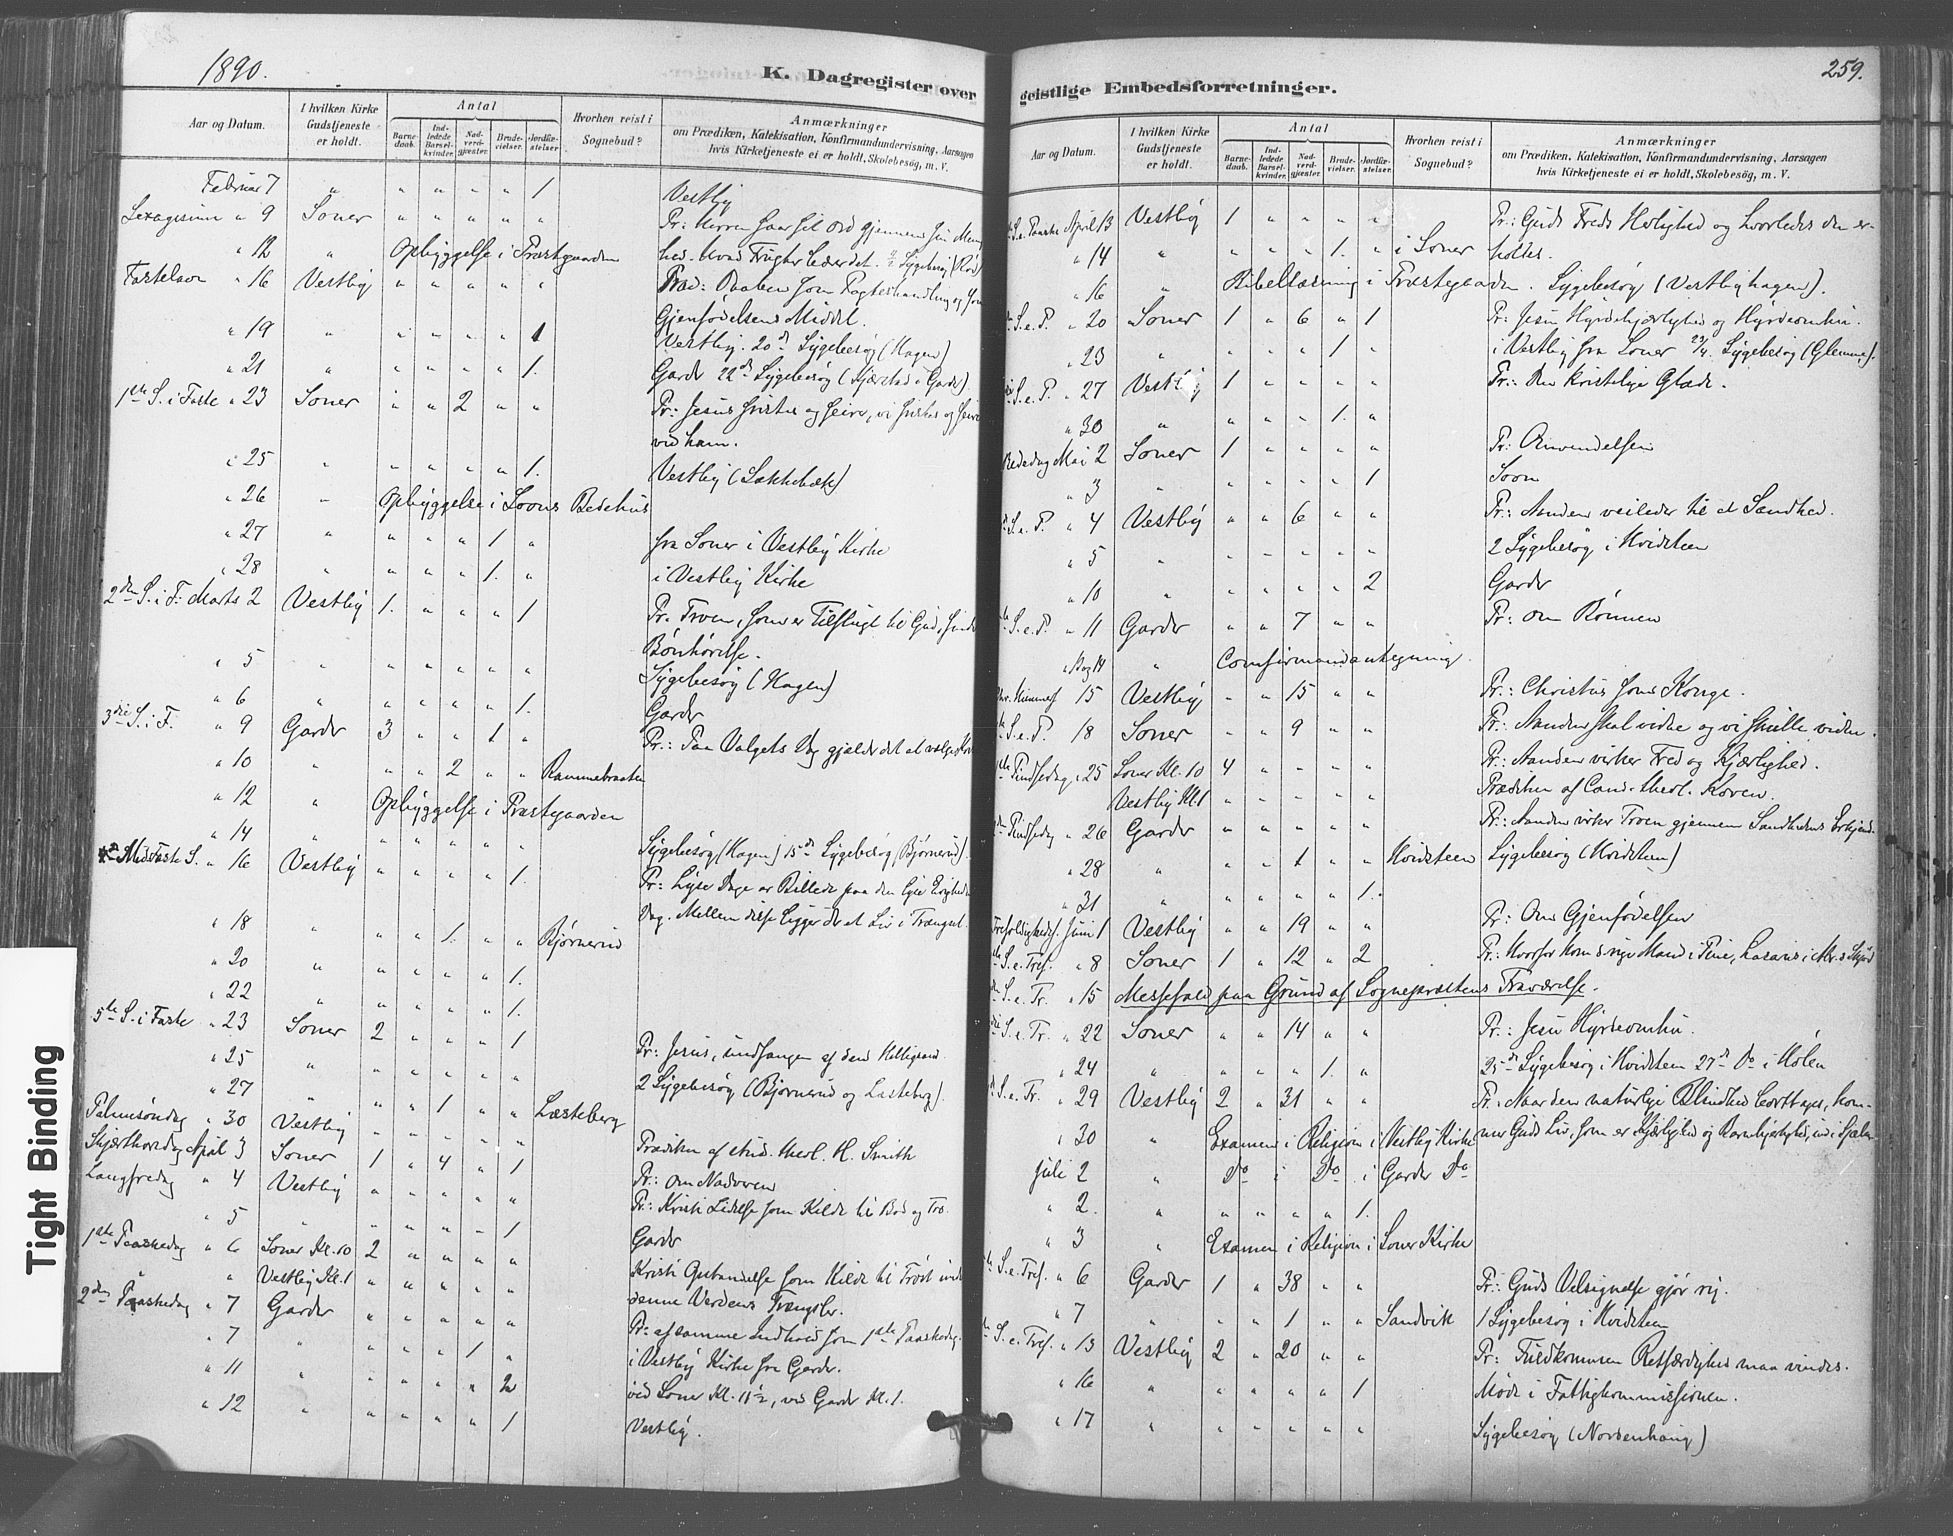 1890.
K. Dagregister over
Aar og Datum.
I hvilken Kirke Gudstjeneste er holdt.
Antal
Barne-daab.
Ind-ledede Barsel-kvinder.
Nad-verd-gjæster.
Brude-vielser.
Jordfæ-stelser
Hvorhen reist i Sognebud?
Anmærkninger
om Prædiken, Katekisation, Konfirmandundervisning, Aarsagen
hvis Kirketjeneste ei er holdt, Skolebesøg, m. V.
Februar 7 " " " " " 1 Vestby
" 9 Soner " " " " "
" 12 " Opbyggelse i Præstgaarden
Fastelavn " 16 Vestby " " " " " Præd: Daaben som Pagteshandling og som
Gjenfødelsens Middel.
" 19 " " " " " 1 Vestby. 20de Sygebesøg (Hagen)
" 21 " " " " " 1. Garder 22de Sygebesøg
1ste S. i Faste " 23 Soner " " 2 " " Pr: Jesus fristes og seirer, vi fristes og seire
ved ham.
" 25 " " " " " 1. Vestby
" 26 " Opbyggelse i Soons Bedehus
" 27 " " " " 1 " fra Soner i Vestby Kirke
" 28 " " " " 1. " i Vestby Kirke
2den S. i F. Marts 2 Vestby 1. " " " 1 Pr. Troen, som er Tilflugt til Gud, finder
Bønhørelse.
" 5 " " " " " " Sygebesøg (Hagen)
" 6 " " " " " 1. Garder
3die S. i F. " 9 Garder 3 " " 1 " Pr.: Paa Valgets Dag gjælder det at vælge
" 10 " " " 2 " " Rammebraaten
" 12 " Opbyggelse i Præstegaarden
" 14 " " " " " " Sygebesøg (Hagen) 15de Sygebesøg (Bjørnerud).
Midfaste S. " 16 Vestby " " " " 1. Pr: Lyse Dage er Billede paa den lyse Evigheds
Dag. Mellem disse ligger der et Liv i Trængsel.
" 18 " " " 1. " " Bjørnerud
" 20 " " " " " 1.
" 22 " " " " " 1.
5te S. i Faste " 23 Soner 2 " " " 1 Pr: Jesus, undfangen af den Helligaand.
" 25 " " " " " " 2 Sygebesøg (Bjørnerud og Lasteberg).
" 27 " " " 1 " " Læsteberg
Palmesøndag " 30 Vestby " " " " " Prædiken af stud. theol. H. Smith
Skjærthorsdag April 3 Soner 1 " 4 " 1 Pr: om Nadveren
Langfredag " 4 Vestby " " " " " Pr: Kristi Lidelse som Kilde til Bod og Tro.
" 5 " " " " " 1 Garder
1ste Paaskedag " 6 Soner Kl. 10 2 " " " " Kristi Opstandelse som Kilde til Trøst under
" Vestby Kl. 1 " " " " " denne Verdens Trængsler.
2den Paaskedag " 7 Garder " " " " " Pr: af samme Indhold som 1ste Paaskedag.
" 7 " " " " 1 " i Vestby Kirke fra Garder.
" 11 " " " " " 2 ved Soner Kl. 11½, ved Garder Kl. 1.
" 12 " " " " " 1 Vestby.
Tight Binding
259.
geistlige Embedsforretninger.
Aar og Datum.
I hvilken Kirke Gudstjeneste er holdt.
Antal
Barne-daab.
Ind-ledede Barsel-kvinder.
Nad-verd-gjæster.
Brude-vielser.
Jordfæ-stelser.
Hvorhen reist i Sognebud?
Anmærkninger
om Prædiken, Katekisation, Konfirmandundervisning, Aarsagen
hvis Kirketjeneste ei er holdt, Skolebesøg, m. V.
S. e. Paaske April 13 Vestby 1 " " " " Pr.: Guds Freds Herlighed og hvorledes den er-
holdes.
" 14 " " " " 1. " i Soner
" 16 " Bibellæsning i Præstegaarden. Sygebesøg (Vestbyhagen).
S. e. P. " 20 Soner 1 " 6 " 1 Pr: Jesu Hyrdekjærlighed og Hyrdeomhu.
" 23 " " " " 1. " i Vestby fra Soner 23/4. Sygebesøg (Glenne).
S. e. P. " 27 Vestby 1 " " " " Pr.: Den kristelige Glæde.
" 30 " " " " 1. "
Bededag Mai 2 Soner 1 " " " " Pr: Omvendelsen
" 3 " " " " " 1 Soon
S. e. P. " 4 Vestby " " 6 " " Pr: Aanden veileder til al Sandhed.
" 5 " " " " " " 2 Sygebesøg i Hvidsteen
" 10 " " " " " 2 Garder
S. e. P. " 11 Garder " " 7 " " Pr: om Bønnen
" 14 " Comfirmandantegning.
Kr. Himmelf. 15 Vestby " " 15 " " Pr: Christus som Konge.
S. e. P. 18 Soner " " 9 " " Pr: Aanden skal vidne og vi skulle vidne.
Pindsedag " 25 Soner Kl. 10 4 " " " " Pr: Aanden virker Fred og Kjærlighed.
Vestby Kl. 1 " " " " " Prædiken af Cand. theol. Koren.
Pindsedag " 26 Garder " " " " " Pr: Aanden virker Troen gjennem Sandhedens
" 28 " " " 1 " " Hvidsteen Sygebesøg (Hvidsteen)
" 31 " " " " " 1.
Trefoldighedsf. Juni 1 Vestby " " 19 " " Pr: Om Gjenfødelsen
S. e. Tref. " 8 Soner 1 " 12 " 2 Pr: Hvorfor kom d. rige Mand i Pine, Lasarus i
S. e. Tr. " 15 Messefald paa Grund af Sognepræstens Fraværelse.
S. e. Tr. " 22 Soner " " 14 " " Pr: Jesu Hyrdeomhu.
" 24 " " " " 1. " 25de Sygebesøg i Hvidsteen 27de Do i Hølen
S. e. Tr. " 29 Vestby 2 " 31 " " Pr: Naar den naturlige Blindhed borttages, kom-
" 30 " Examen i Religion i Vestby Kirke mer Guds Liv, som er Kjærlighed og Barmhjertighed, ind i Sjælen
Juli 2 " Do i Do i Garder Do
" 2. " " " " " 1.
" 3 " Examen i Religion i Soner Kirke
S. e. Tref. " 6 Garder 1 " 38 " " Pr: Guds Velsignelse gjør rig.
" 7 " " " 1 " " Sandvik 1 Sygebesøg i Hvidsteen
S. e. Tref. " 13 Vestby 2 " 20 " " Pr: Fuldkommen Retfærdighed maa vindes.
" 16 " " " " " 1 Møde i Fattigkommissionen.
" 17 " " " " " " Sygebesøg